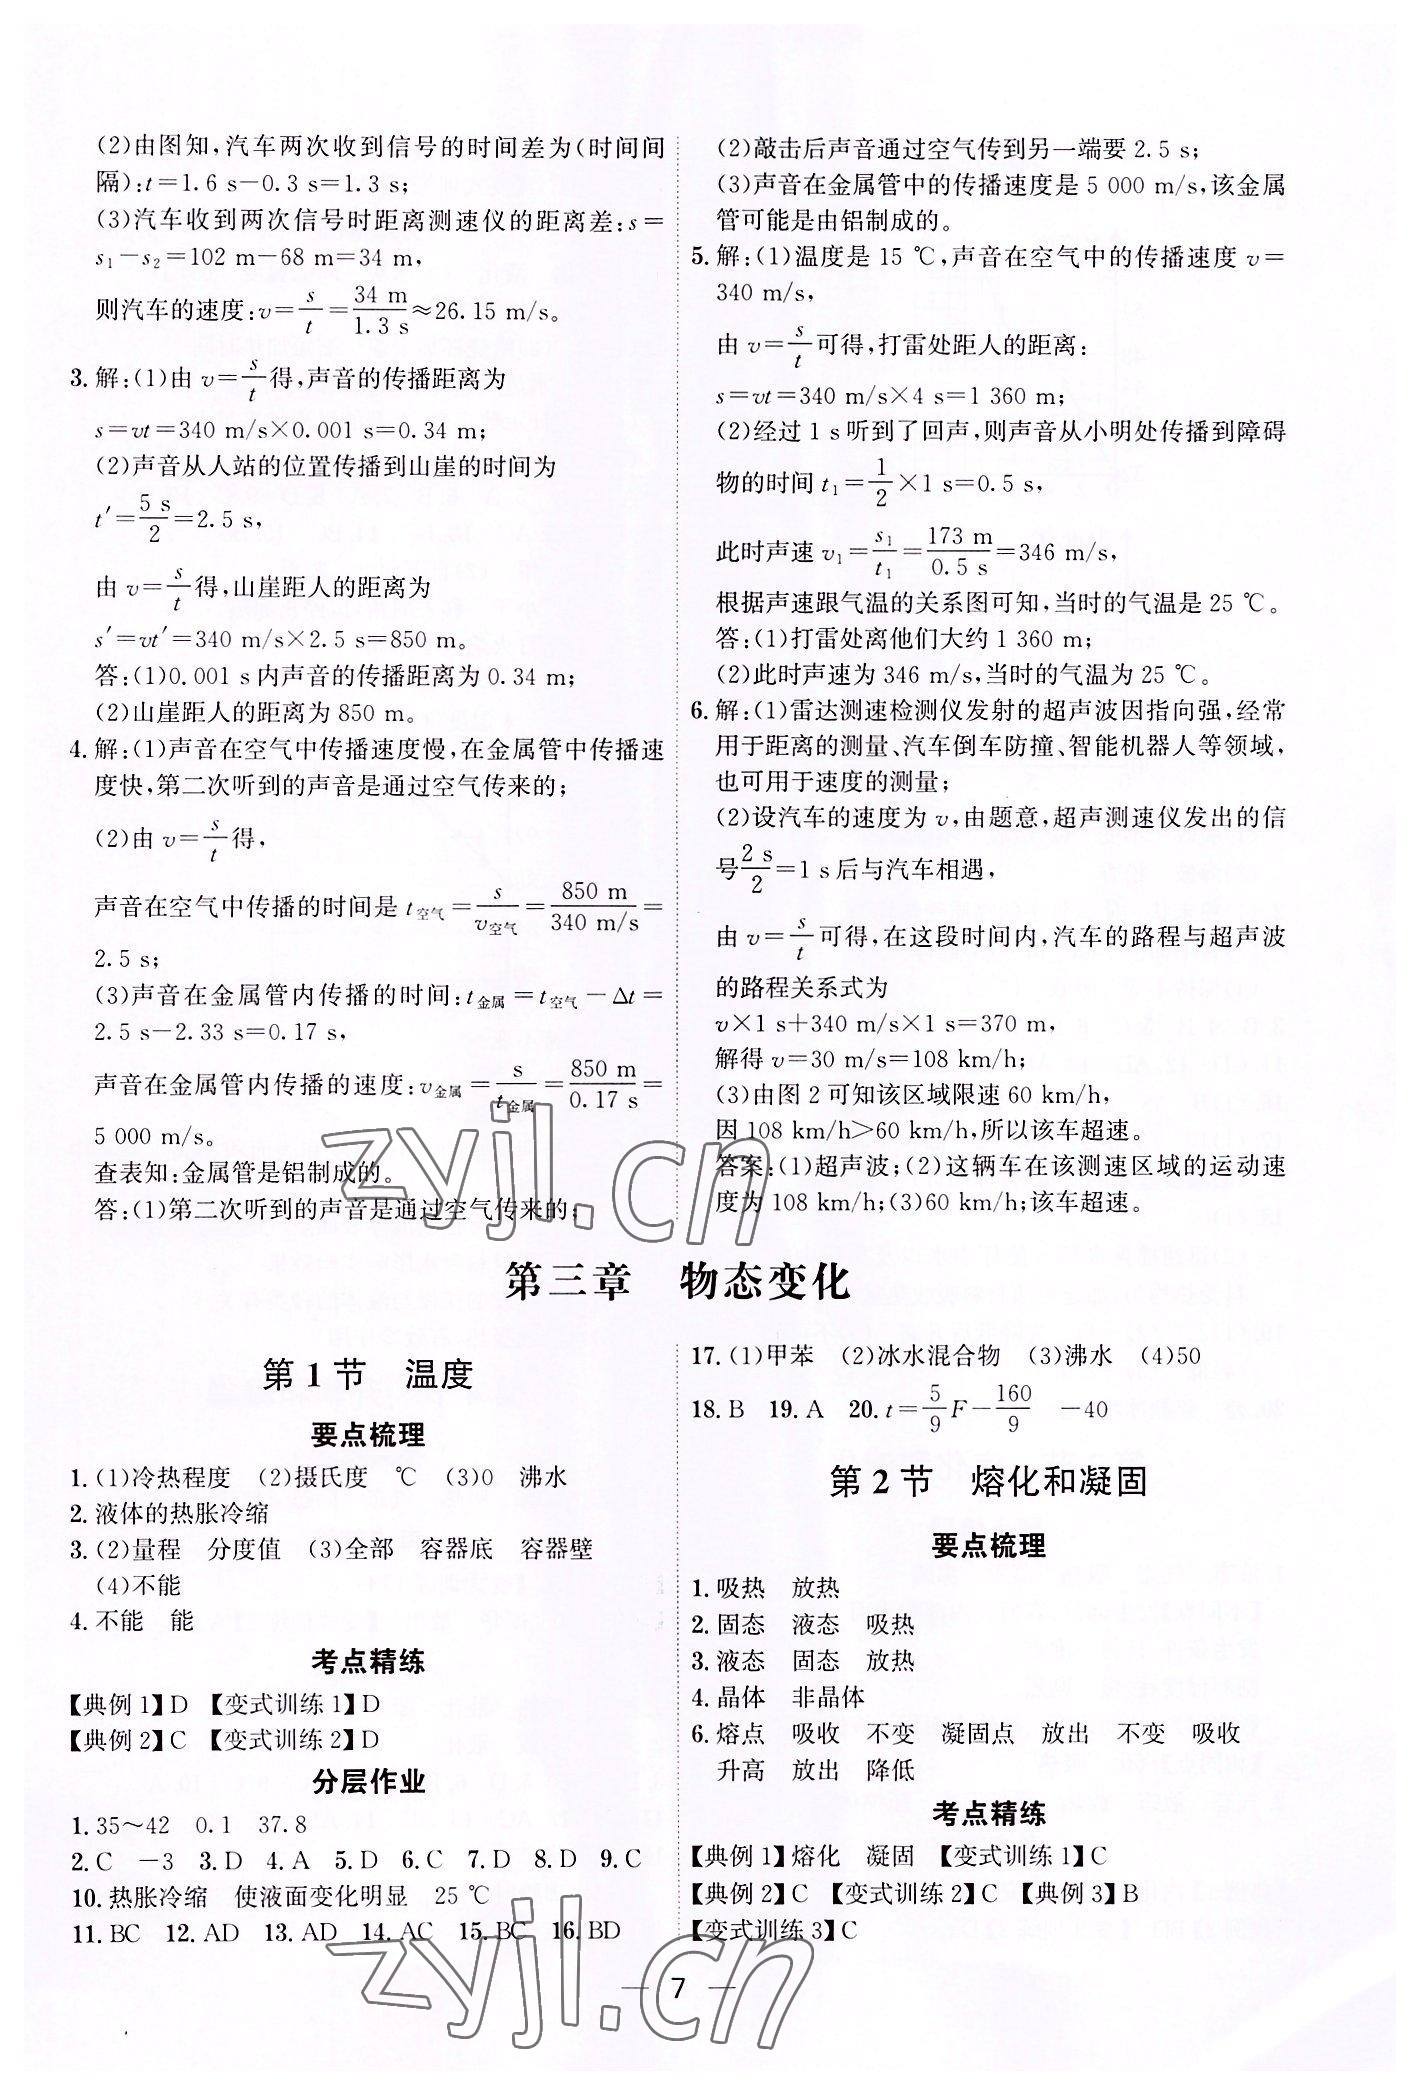 (2)由图知,汽车两次收到信号的时间差为(时间间
隔):t=1.6 s-0.3 s=1.3 s;
(3)汽车收到两次信号时距离测速仪的距离差:s=
s₁-s₂=102 m-68 m=34 m,
则汽车的速度:v=s/t=34 m/1.3 s≈26.15 m/s。
3.解:(1)由 v=s/t得,声音的传播距离为
s=vt=340 m/s×0.001 s=0.34 m;
(2)声音从人站的位置传播到山崖的时间为
t′=5 s/2=2.5 s,
由 v=s/t得,山崖距人的距离为
s′=vt′=340 m/s×2.5 s=850 m。
答:(1)0.001 s内声音的传播距离为 0.34 m;
(2)山崖距人的距离为 850 m。
4.解:(1)声音在空气中传播速度慢,在金属管中传播速
度快,第二次听到的声音是通过空气传来的;
(2)由 v=s/t得,
声音在空气中传播的时间是 t空气=s/v空气=850 m/340 m/s=
2.5 s;
(3)声音在金属管内传播的时间:t金属=t空气-Δt=
2.5 s-2.33 s=0.17 s,
声音在金属管内传播的速度:v金属=s/t金属=850 m/0.17 s=
5 000 m/s。
查表知:金属管是铝制成的。
答:(1)第二次听到的声音是通过空气传来的;
(2)敲击后声音通过空气传到另一端要 2.5 s;
(3)声音在金属管中的传播速度是 5 000 m/s,该金属
管可能是由铝制成的。
5.解:(1)温度是 15 ℃,声音在空气中的传播速度 v=
340 m/s,
由 v=s/t可得,打雷处距人的距离:
s=vt=340 m/s×4 s=1 360 m;
(2)经过 1 s听到了回声,则声音从小明处传播到障碍
物的时间 t₁=1/2×1 s=0.5 s,
此时声速 v₁=s₁/t₁=173 m/0.5 s=346 m/s,
根据声速跟气温的关系图可知,当时的气温是 25 ℃。
答:(1)打雷处离他们大约 1 360 m;
(2)此时声速为 346 m/s,当时的气温为 25 ℃。
6.解:(1)雷达测速检测仪发射的超声波因指向强,经常
用于距离的测量、汽车倒车防撞、智能机器人等领域,
也可用于速度的测量;
(2)设汽车的速度为 v,由题意,超声测速仪发出的信
号2 s/2=1 s后与汽车相遇,
由 v=s/t可得,在这段时间内,汽车的路程与超声波
的路程关系式为
v×1 s+340 m/s×1 s=370 m,
解得 v=30 m/s=108 km/h;
(3)由图 2 可知该区域限速 60 km/h,
因 108 km/h>60 km/h,所以该车超速。
答案:(1)超声波;(2)这辆车在该测速区域的运动速
度为 108 km/h;(3)60 km/h;该车超速。
第三章 物态变化
第 1 节 温度
要点梳理
1.(1)冷热程度 (2)摄氏度 ℃ (3)0 沸水
2.液体的热胀冷缩
3.(2)量程 分度值 (3)全部 容器底 容器壁
(4)不能
4.不能 能
考点精练
【典例 1】D 【变式训练 1】D
【典例 2】C 【变式训练 2】D
分层作业
1.35～42 0.1 37.8
2.C -3 3.D 4.A 5.D 6.C 7.D 8.D 9.C
10.热胀冷缩 使液面变化明显 25 ℃
11.BC 12.AD 13.AD 14.AC 15.BC 16.BD
17.(1)甲苯 (2)冰水混合物 (3)沸水 (4)50
18.B 19.A 20.t=5/9F-160/9 -40
第 2 节 熔化和凝固
要点梳理
1.吸热 放热
2.固态 液态 吸热
3.液态 固态 放热
4.晶体 非晶体
6.熔点 吸收 不变 凝固点 放出 不变 吸收
升高 放出 降低
考点精练
【典例 1】熔化 凝固 【变式训练 1】C
【典例 2】C 【变式训练 2】C 【典例 3】B
【变式训练 3】C
7
zyjl.cn
zyjl.cn